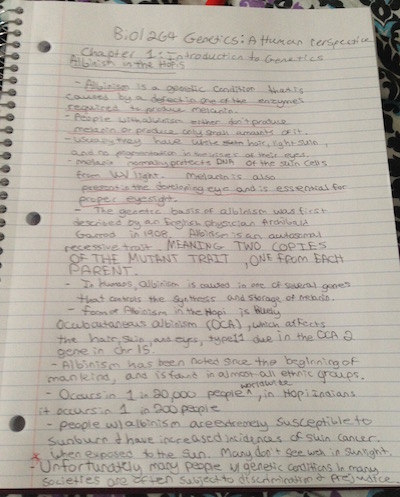 Biol 264 Genetics: A Human Perspective
Chapter 1: Introduction to Genetics
Albinism in the Hopis
- Albinism is a genetic condition that is
caused by a defect in one of the enzymes
required to produce melanin.
- People with albinism either don't produce
melanin or produce only small amounts of it.
- Usually they have white hair, light skin,
and no pigmentation in the irises of their eyes.
- melanin normally protects DNA of the skin cells
from UV light. Melanin is also
present in the developing eye and is essential for
proper eyesight.
- The genetic basis of albinism was first
described by an English physician Archibald
Garrod in 1908. Albinism is an autosomal
recessive trait. MEANING TWO COPIES
OF THE MUTANT TRAIT, ONE FROM EACH
PARENT.
- In humans, albinism is caused in one of several genes
that controls the synthesis and storage of melanin.
- form of Albinism in the Hopi is likely
Oculocutaneous albinism (OCA), which affects
the hair, skin, and eyes, type II due in the OCA 2
gene in chr 15.
- Albinism has been noted since the beginning of
mankind, and is found in almost all ethnic groups.
- Occurs in 1 in 20,000 people worldwide, in Hopi Indians
it occurs in 1 in 200 people
- people w/ albinism are extremely susceptible to
sunburn & have increased incidences of skin cancer.
* when exposed to the sun. Many don't see well in sunlight.
- Unfortunately many people w/ genetic conditions in many
societies are often subject to discrimination & prejudice.